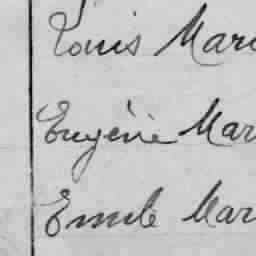 Louis Mar
Eugénie Mar
Emile Mar